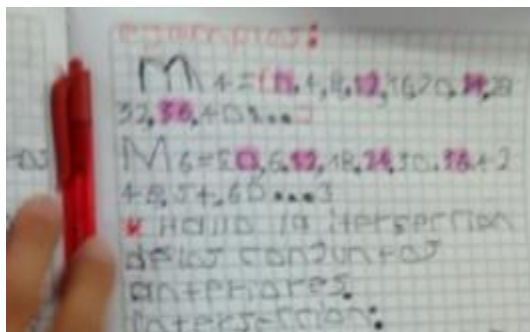 ejemplos:
M4={0,4,8,12,16,20,24,28
32,36,40...}
M6={0,6,12,18,24,30,36,42
48,54,60...}
* Halla la itersercion
delos conjuntos
anteriores.
intersercion: